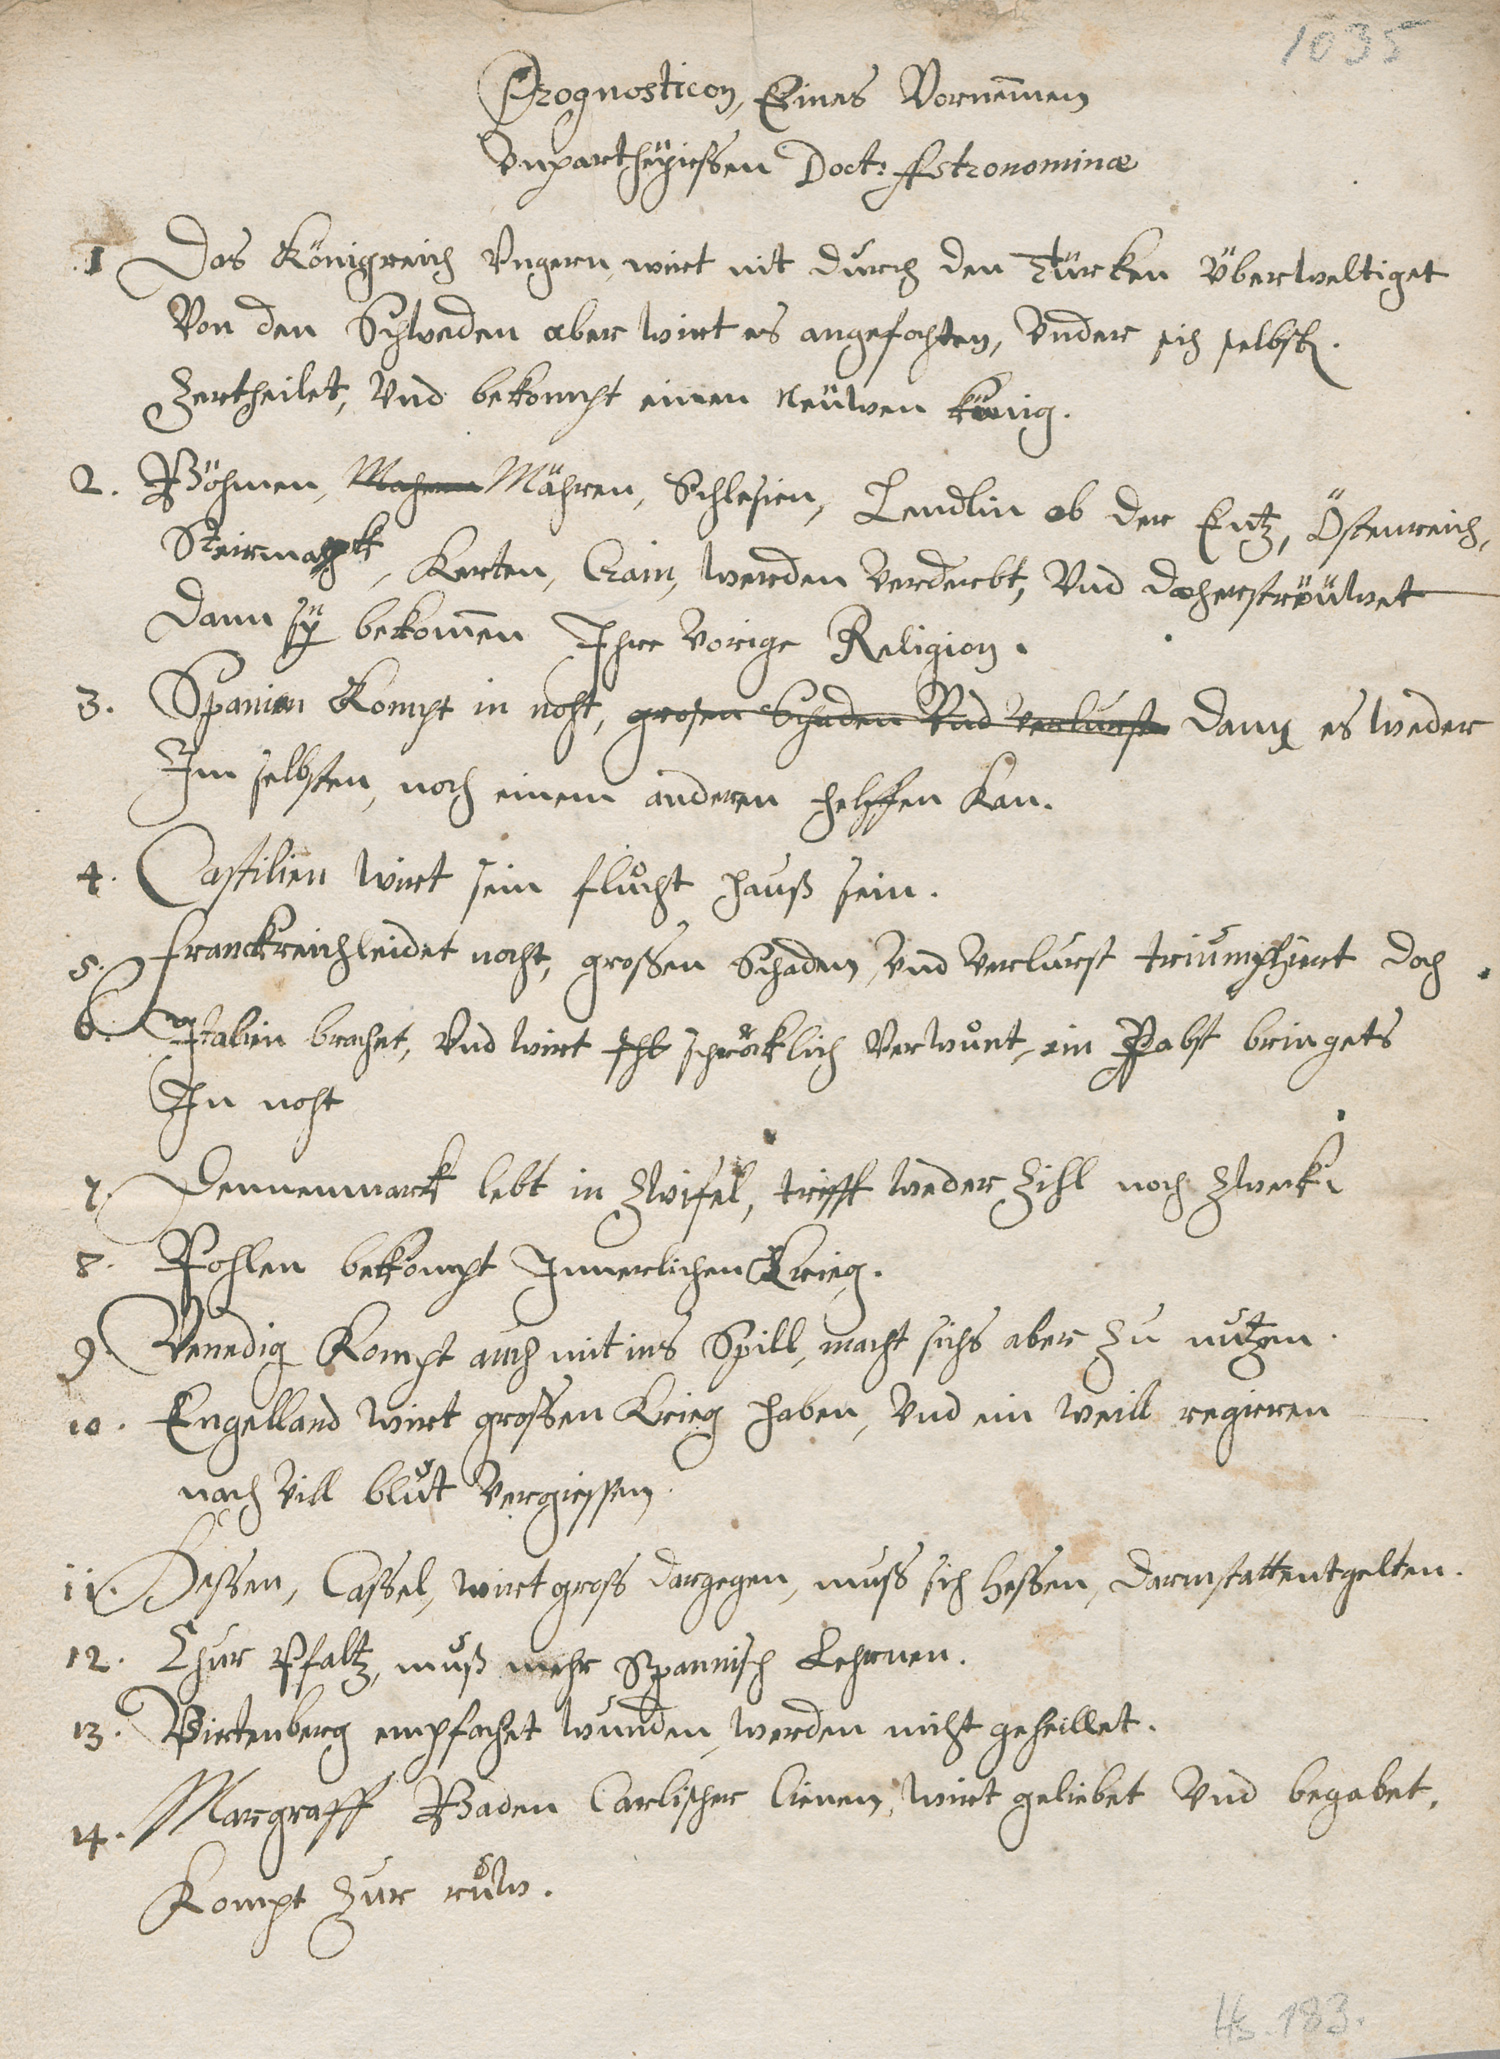 1035
Prognosticon, Eines Vornem̄en
Vnpartheyischen Doct: Astronominæ
1 Das Königreich Vngern, wirt nit durch den Türcken Überweltiget
Von den Schweden aber wirt es angefochten, Vnder sich selbst.
Zertheilet, Vnd bekompt einen Neüwen König.
2. Böhmen, Mahren Mähren, Schlesien, Lendlin ob der Entz, Östenreich,
Steirmarck, Kerten, Crain, werden Verderbt, Vnd daherströüwet
Dann sÿ bekom̄en Ihre Vorige Religion.
3. Spanien Kompt in noht, grosen Schaden Vnd Verlurst Dann es weder
Im selbsten, noch einem anderen helffen Kan.
4. Castilien Wirt sein flucht hauß sein.
5. Franckreich leidet noht, grossen Schaden, Vnd Verlurst triumphiert doch
6. Italien brachet, Vnd Wirt schröcklich Verwunt, ein Pabst bringets
In noht
7. Dennenmarck lebt in Zwifel, trifft weder Zihl noch Zweck.
8. Pohlen bekompt Innerlichen Krieg.
9. Venedig Kompt auch mit ins Spill, macht sichs aber Zu nutzen.
10. Engelland Wirt grossen Krieg haben, Vnd ein Weill regieren
nach Vill blut Vergiessen.
11. Hessen, Cassel, Wirt gross dargegen, muss sich Hessen, Darmstatt entgelten.
12. Chur Pfaltz, muß mehr Spannisch Lehrnen.
13. Wirtenberg empfachet wunden, werden nicht geheillet.
14. Margraff Baden Carlischer Lienen, Wirt geliebet Vnd begabet,
Kompt Zur ruw.
Hs. 183.